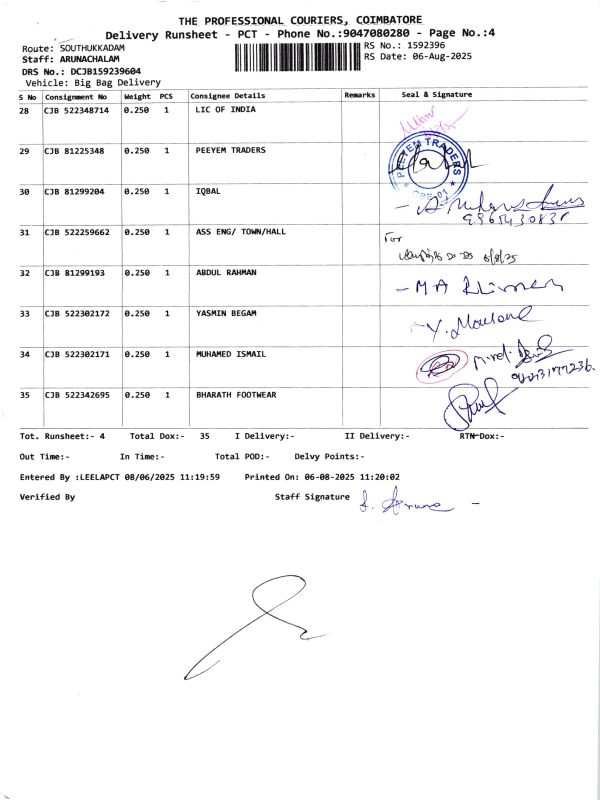 THE PROFESSIONAL COURIERS, COIMBATORE
Delivery Runsheet - PCT - Phone No.:9047080280 - Page No.:4
Route: SOUTHUKKADAM
RS No.: 1592396
Staff: ARUNACHALAM
RS Date: 06-Aug-2025
DRS No.: DCJB159239604
Vehicle: Big Bag Delivery
S No Consignment No Weight PCS Consignee Details Remarks Seal & Signature
28 CJB 522348714 0.250 1 LIC OF INDIA
29 CJB 81225348 0.250 1 PEEYEM TRADERS
PEEYEM TRADERS
30 CJB 81299204 0.250 1 IQBAL
31 CJB 522259662 0.250 1 ASS ENG/ TOWN/HALL
For
6/8/25
32 CJB 81299193 0.250 1 ABDUL RAHMAN
- M A
33 CJB 522302172 0.250 1 YASMIN BEGAM
34 CJB 522302171 0.250 1 MUHAMED ISMAIL
35 CJB 522342695 0.250 1 BHARATH FOOTWEAR
Tot. Runsheet:- 4 Total Dox:- 35 I Delivery:- II Delivery:- RTN Dox:-
Out Time:- In Time:- Total POD:- Delvy Points:-
Entered By :LEELAPCT 08/06/2025 11:19:59 Printed On: 06-08-2025 11:20:02
Verified By Staff Signature